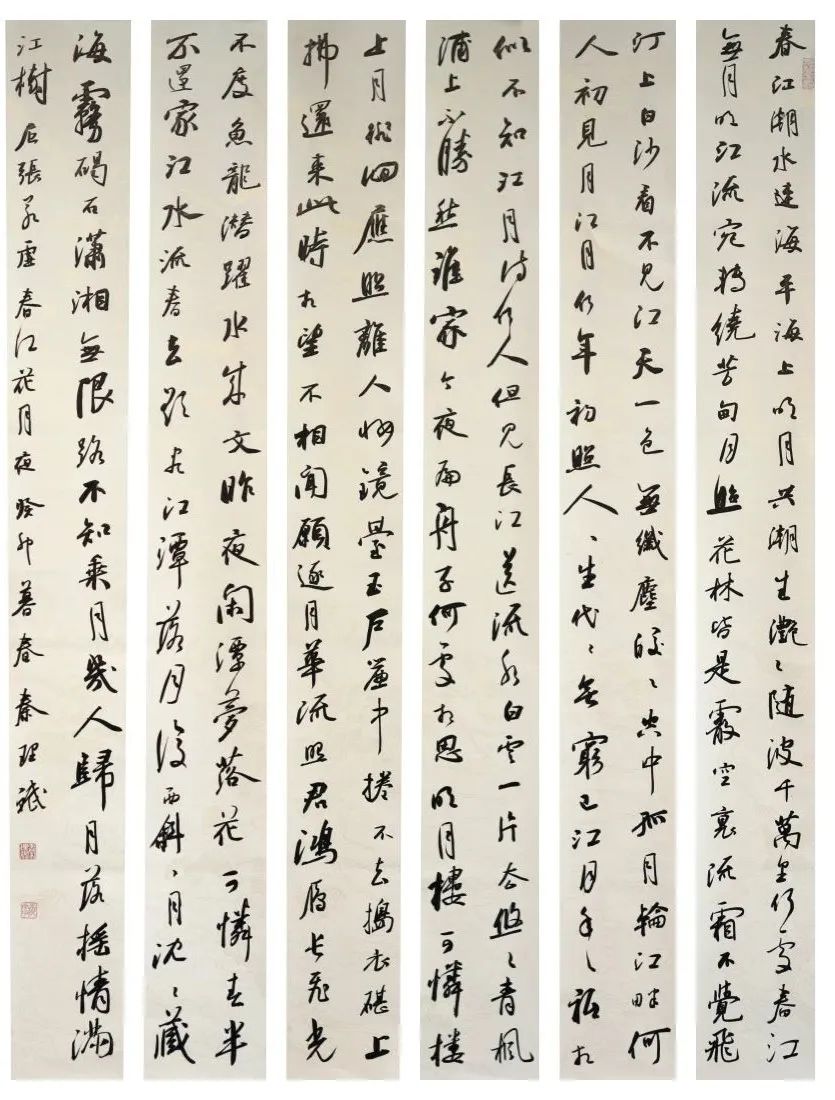 春江潮水連海平海上明月共潮生灧〻随波千萬里何處春江
無月明江流宛轉繞芳甸月照花林皆是霰空裏流霜不覺飛
汀上白沙看不見江天一色無纖塵皎〻空中孤月輪江畔何
人初見月江月何年初照人〻生代〻無窮已江月年〻祗相
似不知江月待何人但見長江送流水白雲一片去悠〻青楓
浦上不勝愁誰家今夜扁舟子何處相思明月樓可憐樓
上月徘徊應照離人妝鏡臺玉戶簾中捲不去搗衣砧上
拂還來此時相望不相聞願逐月華流照君鴻雁長飛光
不度魚龍潛躍水成文昨夜閑潭夢落花可憐春半
不還家江水流春去欲盡江潭落月復西斜〻月沈〻藏
海霧碣石瀟湘無限路不知乘月幾人歸月落搖情滿
江樹 右張若虛春江花月夜癸卯暮春秦理